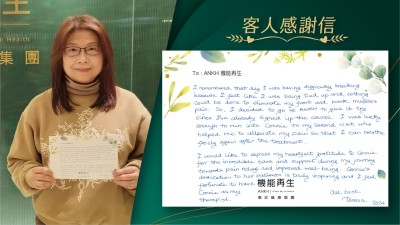 客人感謝信
To : ANKH 機能再生
I remembered that day I was having difficulty breathing
because I felt like I was being tied up and nothing
could be done to eliminate my front and back muscles
pain. So, I decided to go to ANKH to give it try
since I've already signed up the course. I was lucky
enough to meet with Connie, on my second visit who
helped me to alleviate my pain so that I can breathe
again after the treatment.
I would like to express my heartfelt gratitude to Connie
for the incredible care and support during my journey
towards pain relief and improved well-being. Connie's
dedication to her patients is truly inspiring and I feel
fortunate to have
Connie as my
therapist.
機能再生
ANKH
集團
Health